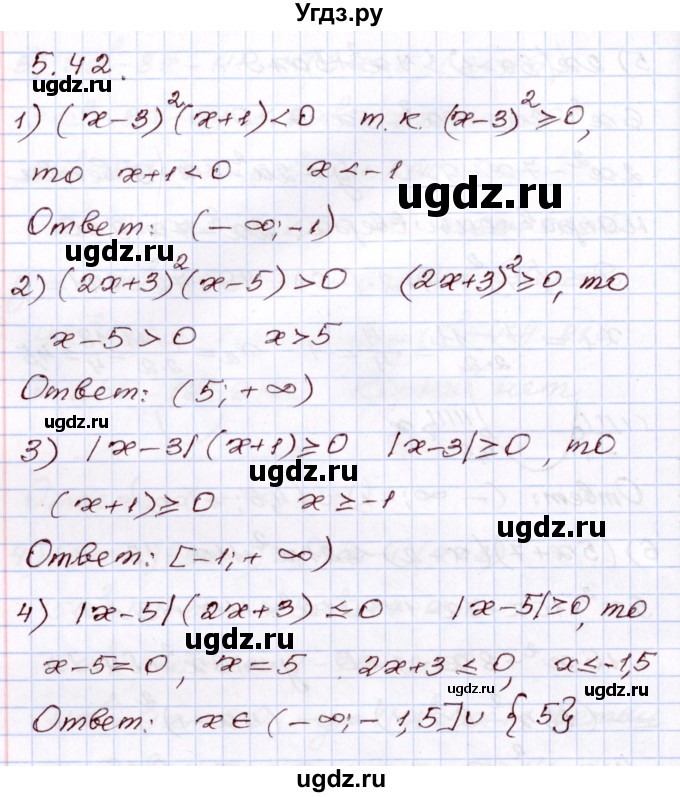 Угдз.ру
5.42.
ugdz.ru
1) (x-3)²(x+1)<0 т.к. (x-3)²≥0,
то x+1<0 x<-1
ugdz.ru
Ответ: (-∞;-1)
ugdz.ru
2) (2x+3)²(x-5)>0 (2x+3)²≥0, то
x-5>0 x>5
ugdz.ru
Ответ: (5;+∞)
ugdz.ru
3) |x-3|(x+1)≥0 |x-3|≥0, то
ugdz.ru
(x+1)≥0 x≥-1
ugdz.ru
Ответ: [-1;+∞)
4) |x-5|(2x+3)≤0 |x-5|≥0, то
ugdz.ru
x-5=0, x=5 2x+3≤0, x≤-1,5
ugdz.ru
ugdz.ru
Ответ: x∈(-∞;-1,5]∪{5}
ugdz.ru